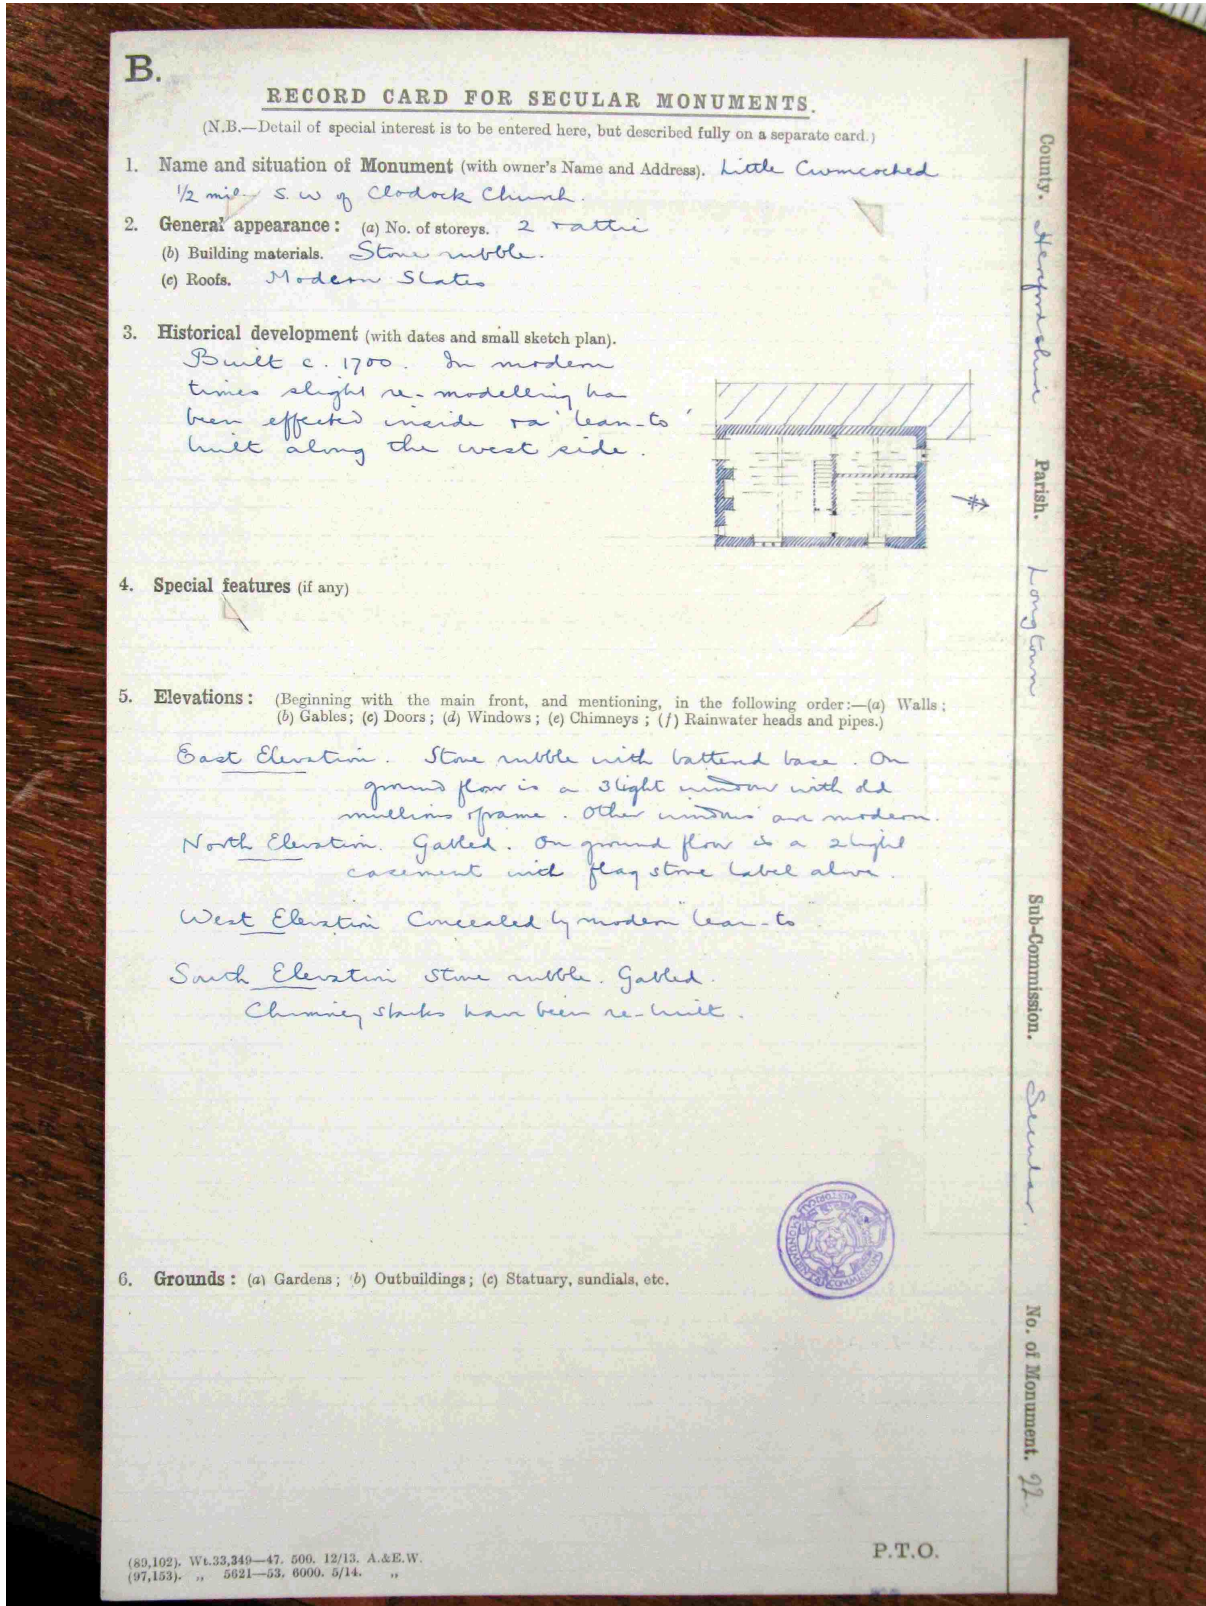 B.
RECORD CARD FOR SECULAR MONUMENTS.
(N.B.—Detail of special interest is to be entered here, but described fully on a separate card.)
1. Name and situation of Monument (with owner's Name and Address). Little Cwmcoched
1/2 mile S. W of Clodock Church.
2. General appearance: (a) No. of storeys. 2 & attic
(b) Building materials. Stone rubble.
(c) Roofs. Modern Slates
3. Historical development (with dates and small sketch plan).
Built c. 1700. In modern
times slight re-modelling has
been effected inside & a 'lean-to'
built along the west side.
4. Special features (if any)
5. Elevations: (Beginning with the main front, and mentioning, in the following order:—(a) Walls;
(b) Gables; (c) Doors; (d) Windows; (e) Chimneys; (f) Rainwater heads and pipes.)
East Elevation. Stone rubble with battered base. On
ground floor is a 3 light window with old
mullions & frame. Other windows are modern.
North Elevation. Gabled. On ground floor is a 2 light
casement with flag stone label above.
West Elevation Concealed by modern lean-to
South Elevation Stone rubble. Gabled.
Chimney stacks have been re-built.
6. Grounds: (a) Gardens; (b) Outbuildings; (c) Statuary, sundials, etc.
P.T.O.
(89,102). Wt.33,349—47. 500. 12/13. A.&E.W.
(97,153). ,, 5621—53. 6000. 5/14. ,,
County. Herefordshire Parish. Longtown Sub-Commission. Secular. No. of Monument. 22